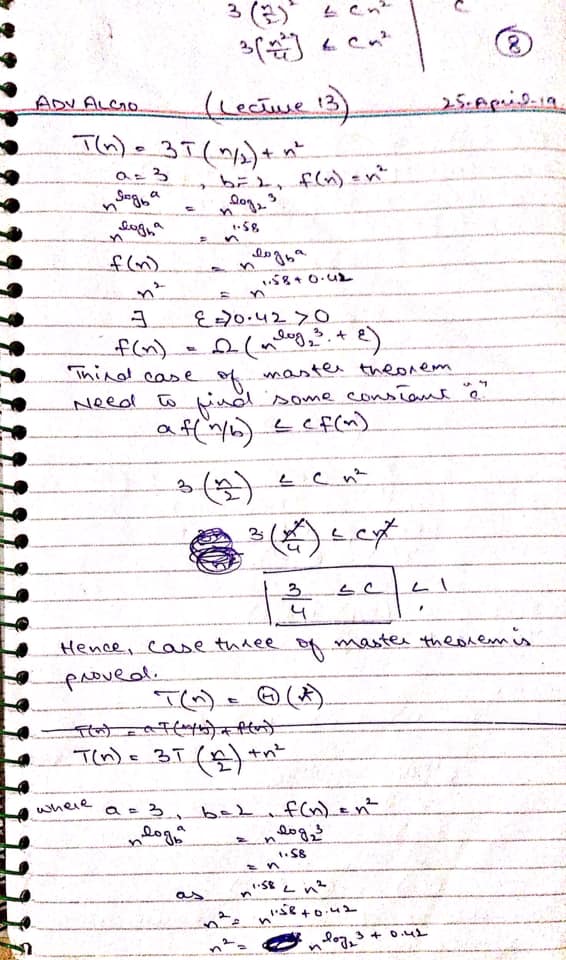 3 (n/2)² ≤ cn²
c
3[n²/4] ≤ cn²
8
ADV ALGO (Lecture 13) 25-April-19
T(n) = 3T(n/2) + n²
a=3, b=2, f(n)=n²
n^log_b a = n^log_2 3
n^log_b a = n^1.58
f(n) = n^log_b a
n² = n^1.58+0.42
∃ ε=>0.42 >0
f(n) = Ω(n^log_2 3 + ε)
Third case of master theorem
Need to find some constant "c"
a f(n/b) ≤ c f(n)
3 (n/2) ≤ c n²
3 (n²/4) ≤ cn²
3/4 ≤ c < 1
Hence, case three of master theorem is
proved.
T(n) = Θ( )
T(n) = aT(n/b) + f(n)
T(n) = 3T (n/2) + n²
where a=3, b=2, f(n)=n²
n^log_b a = n^log_2 3
= n^1.58
as n^1.58 < n²
n² = n^1.58+0.42
n² = n^log_2 3 + 0.42